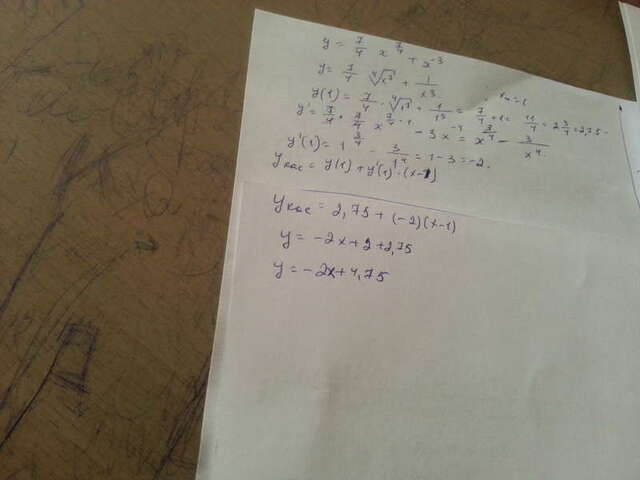 y = 7/4 x^(7/4) + x^(-3)
y = 7/4 ⁴√x⁷ + 1/x³
x₀ = 1
y(1) = 7/4 · ⁴√1⁷ + 1/1³ = 7/4 + 1 = 11/4 = 2 3/4 = 2,75
x^(7/4 - 1) - 3x^(-4) = x^(3/4) - 3/x⁴
y'(1) = 1^(3/4) - 3/1⁴ = 1 - 3 = -2.
yкас = y(1) + y'(1) · (x-1)
yкас = 2,75 + (-2)(x-1)
y = -2x + 2 + 2,75
y = -2x + 4,75